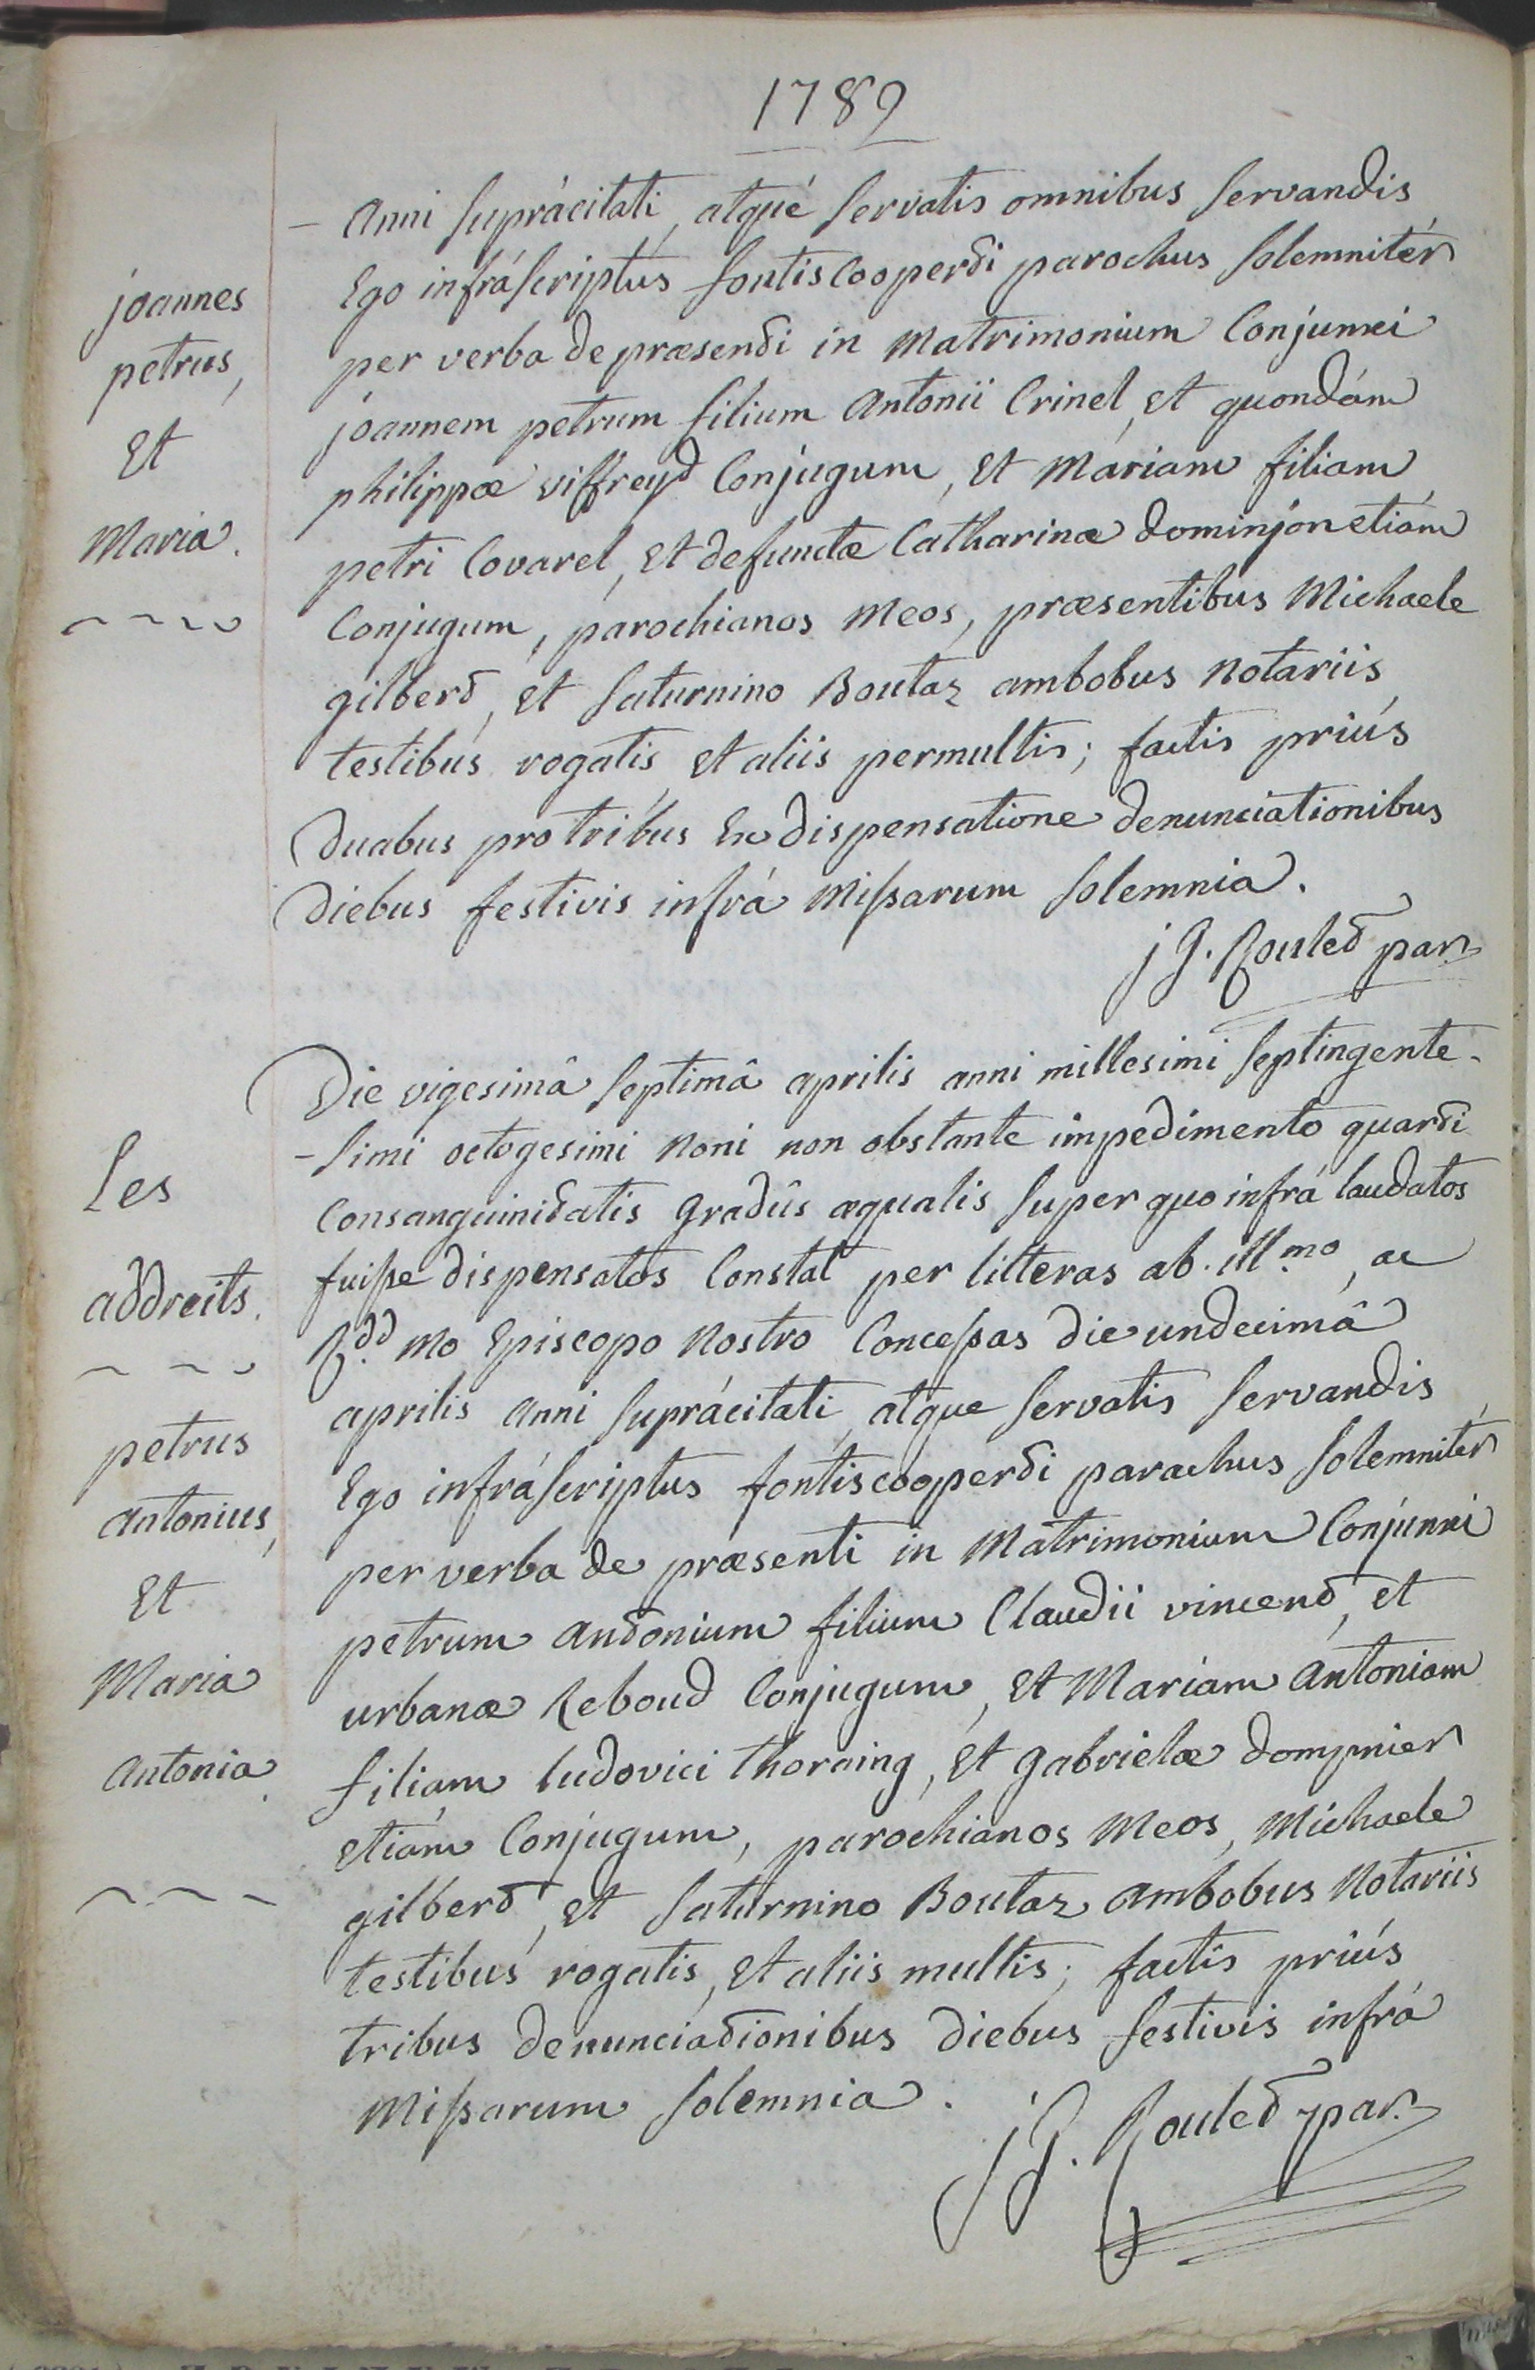 1789
- Anni suprácitati, atqué servatis omnibus servandis
Ego infráscriptus fontiscooperti parochus solemnitér
per verba de præsenti in Matrimonium Conjunxi
joannem petrum filium Antonii Crinel, et quondám
philippæ viffreyd Conjugum, et Máriam filiam
petri Covarel, et defunctæ Catharinæ dominjon etiám
Conjugum, parochianos meos, præsentibus Michaele
gilbert, et saturnino Boutaz ambobus notariis
testibus rogatis, et aliis permultis; factis priús
duabus pro tribus Ex dispensatione denunciationibus
diebus festivis infrá Missarum solemnia.
j G. Roulet par.
joannes
petrus,
Et
Maria.
Die vigesimâ septimâ aprilis anni millesimi septingente-
-simi octogesimi noni non obstante impedimento quarti
Consanguinitatis gradûs æqualis super quo infrá laudatos
fuisse dispensatos Constat per litteras ab ill.mo, ac
R.dd mo Episcopo nostro Concessas die undecimâ
aprilis anni suprácitati, atque servatis servandis,
Ego infráscriptus fontiscooperti parochus solemnitér
per verba de præsenti in Matrimonium Conjunxi
petrum antonium filium Claudii vincent, et
urbanæ Reboud Conjugum, et Mariam Antoniam
filiam ludovici thoraing, et gabrielæ dompnier
etiám Conjugum, parochianos meos, Michaele
gilbert, et saturnino Boutaz ambobus notariis
testibus rogatis, et aliis multis; factis priús
tribus denunciationibus diebus festivis infrá
Missarum solemnia.
j G. Roulet par.
Les
addreits.
petrus
antonius,
Et
Maria
antonia.